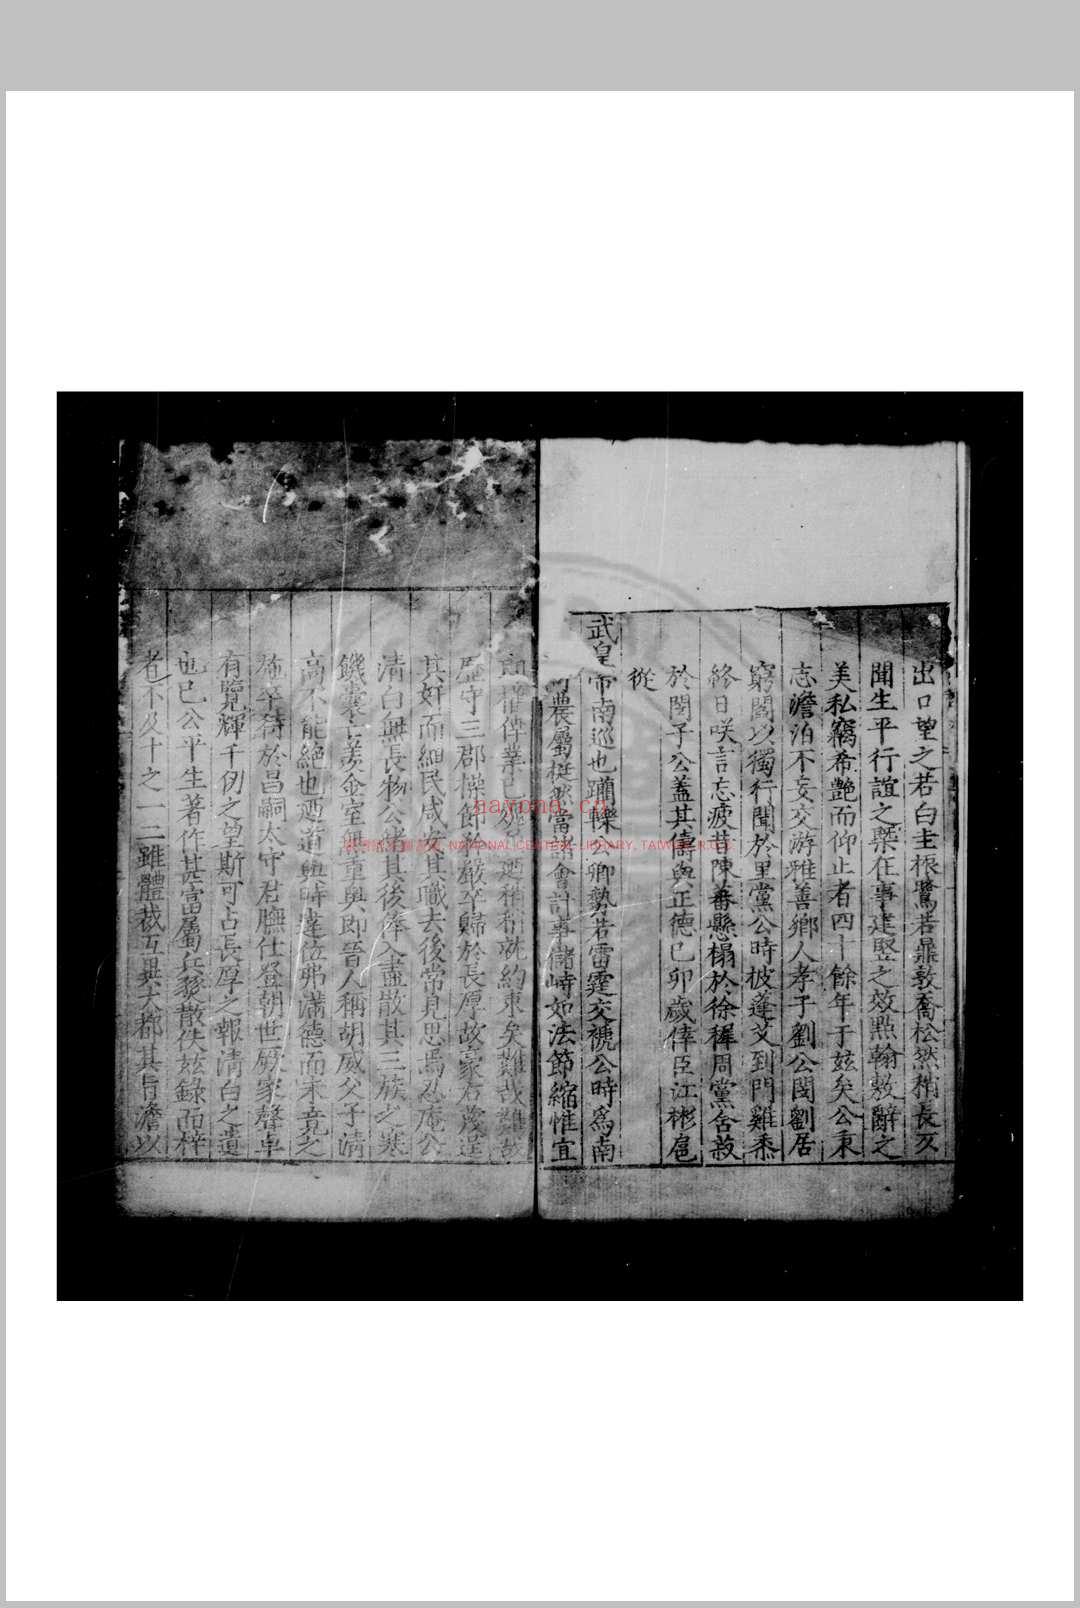 出口望之若白圭振鷺若鼎敦喬松然稍長又
聞生平行誼之槩在事建竪之效㸃翰敷辭之
美私竊希艷而仰止者四十餘年于兹矣公秉
志澹泊不妄交游雅善鄉人孝子劉公閔劉居
窮閻以獨行聞於里黨公時披蓬艾到門雞黍
終日咲言忘疲昔陳蕃懸榻於徐穉周黨舍菽
於閔子公蓋其儔與正德己卯歲倖臣江彬扈
從
武皇帝南巡也躪轢公卿勢若雷霆交褫公時爲南
農屬梃當諸會計事儲峙如法節縮惟宜
權倖業已稍稍就約束矣難哉難哉
歷守三郡操節矜嚴卒歸於長厚故豪右茂逞
其奸而細民咸安其職去後常見思焉忍庵公
清白無長物公緒其後俸入盡散其三族之寒
饑囊亡羡金室無重與即晉人稱胡威父子清
高不能絶也迺道與時違位弗滿德而未竟之
施卒待於昌嗣太守君膴仕登朝世厥家聲卓
有覽輝千仞之望斯可占長厚之報清白之遺
也已公平生著作甚富屬兵燹散佚兹錄而梓
者不及十之一二雖體裁互異大都其旨澹以
aayonn.cn
NATIONAL CENTRAL LIBRARY, TAIWAN, R.O.C